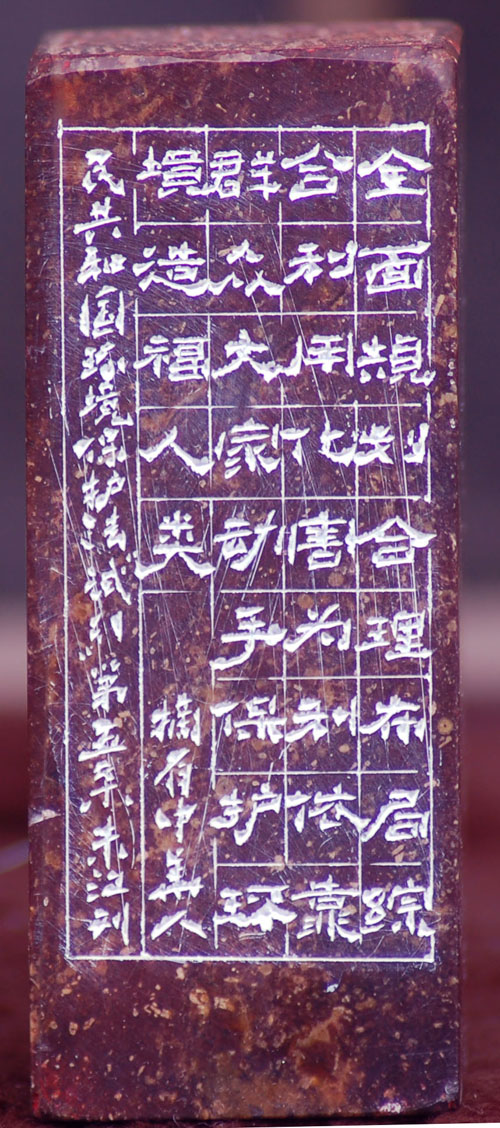 全面規划合理布局綜
合利用化害为利依靠
群众大家动手保护环
境造福人类
摘有中华人
民共和国环境保护法试行第五条朱江刻